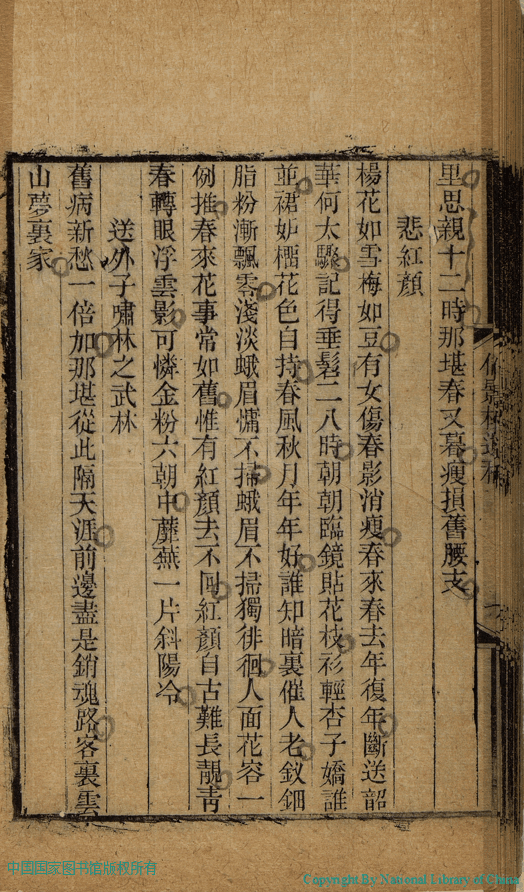 里思親十二時那堪春又暮瘦損舊腰支
悲紅顏
楊花如雪梅如豆有女傷春影消瘦春來春去年復年斷送韶
華何太驟記得垂髫二八時朝朝臨鏡貼花枝衫輕杏子嬌誰
並裙妒榴花色自持春風秋月年年好誰知暗裏催人老釵鈿
脂粉漸飄零淺淡蛾眉慵不掃蛾眉不掃獨徘徊人面花容一
例推春來花事常如舊惟有紅顏去不回紅顏自古難長靚青
春轉眼浮雲影可憐金粉六朝中蘼蕪一片斜陽冷
送外子嘯林之武林
舊病新愁一倍加那堪從此隔天涯前邊盡是銷魂路客裏雲
山夢裏家
中国国家图书馆版权所有
Copyright By National Library of China